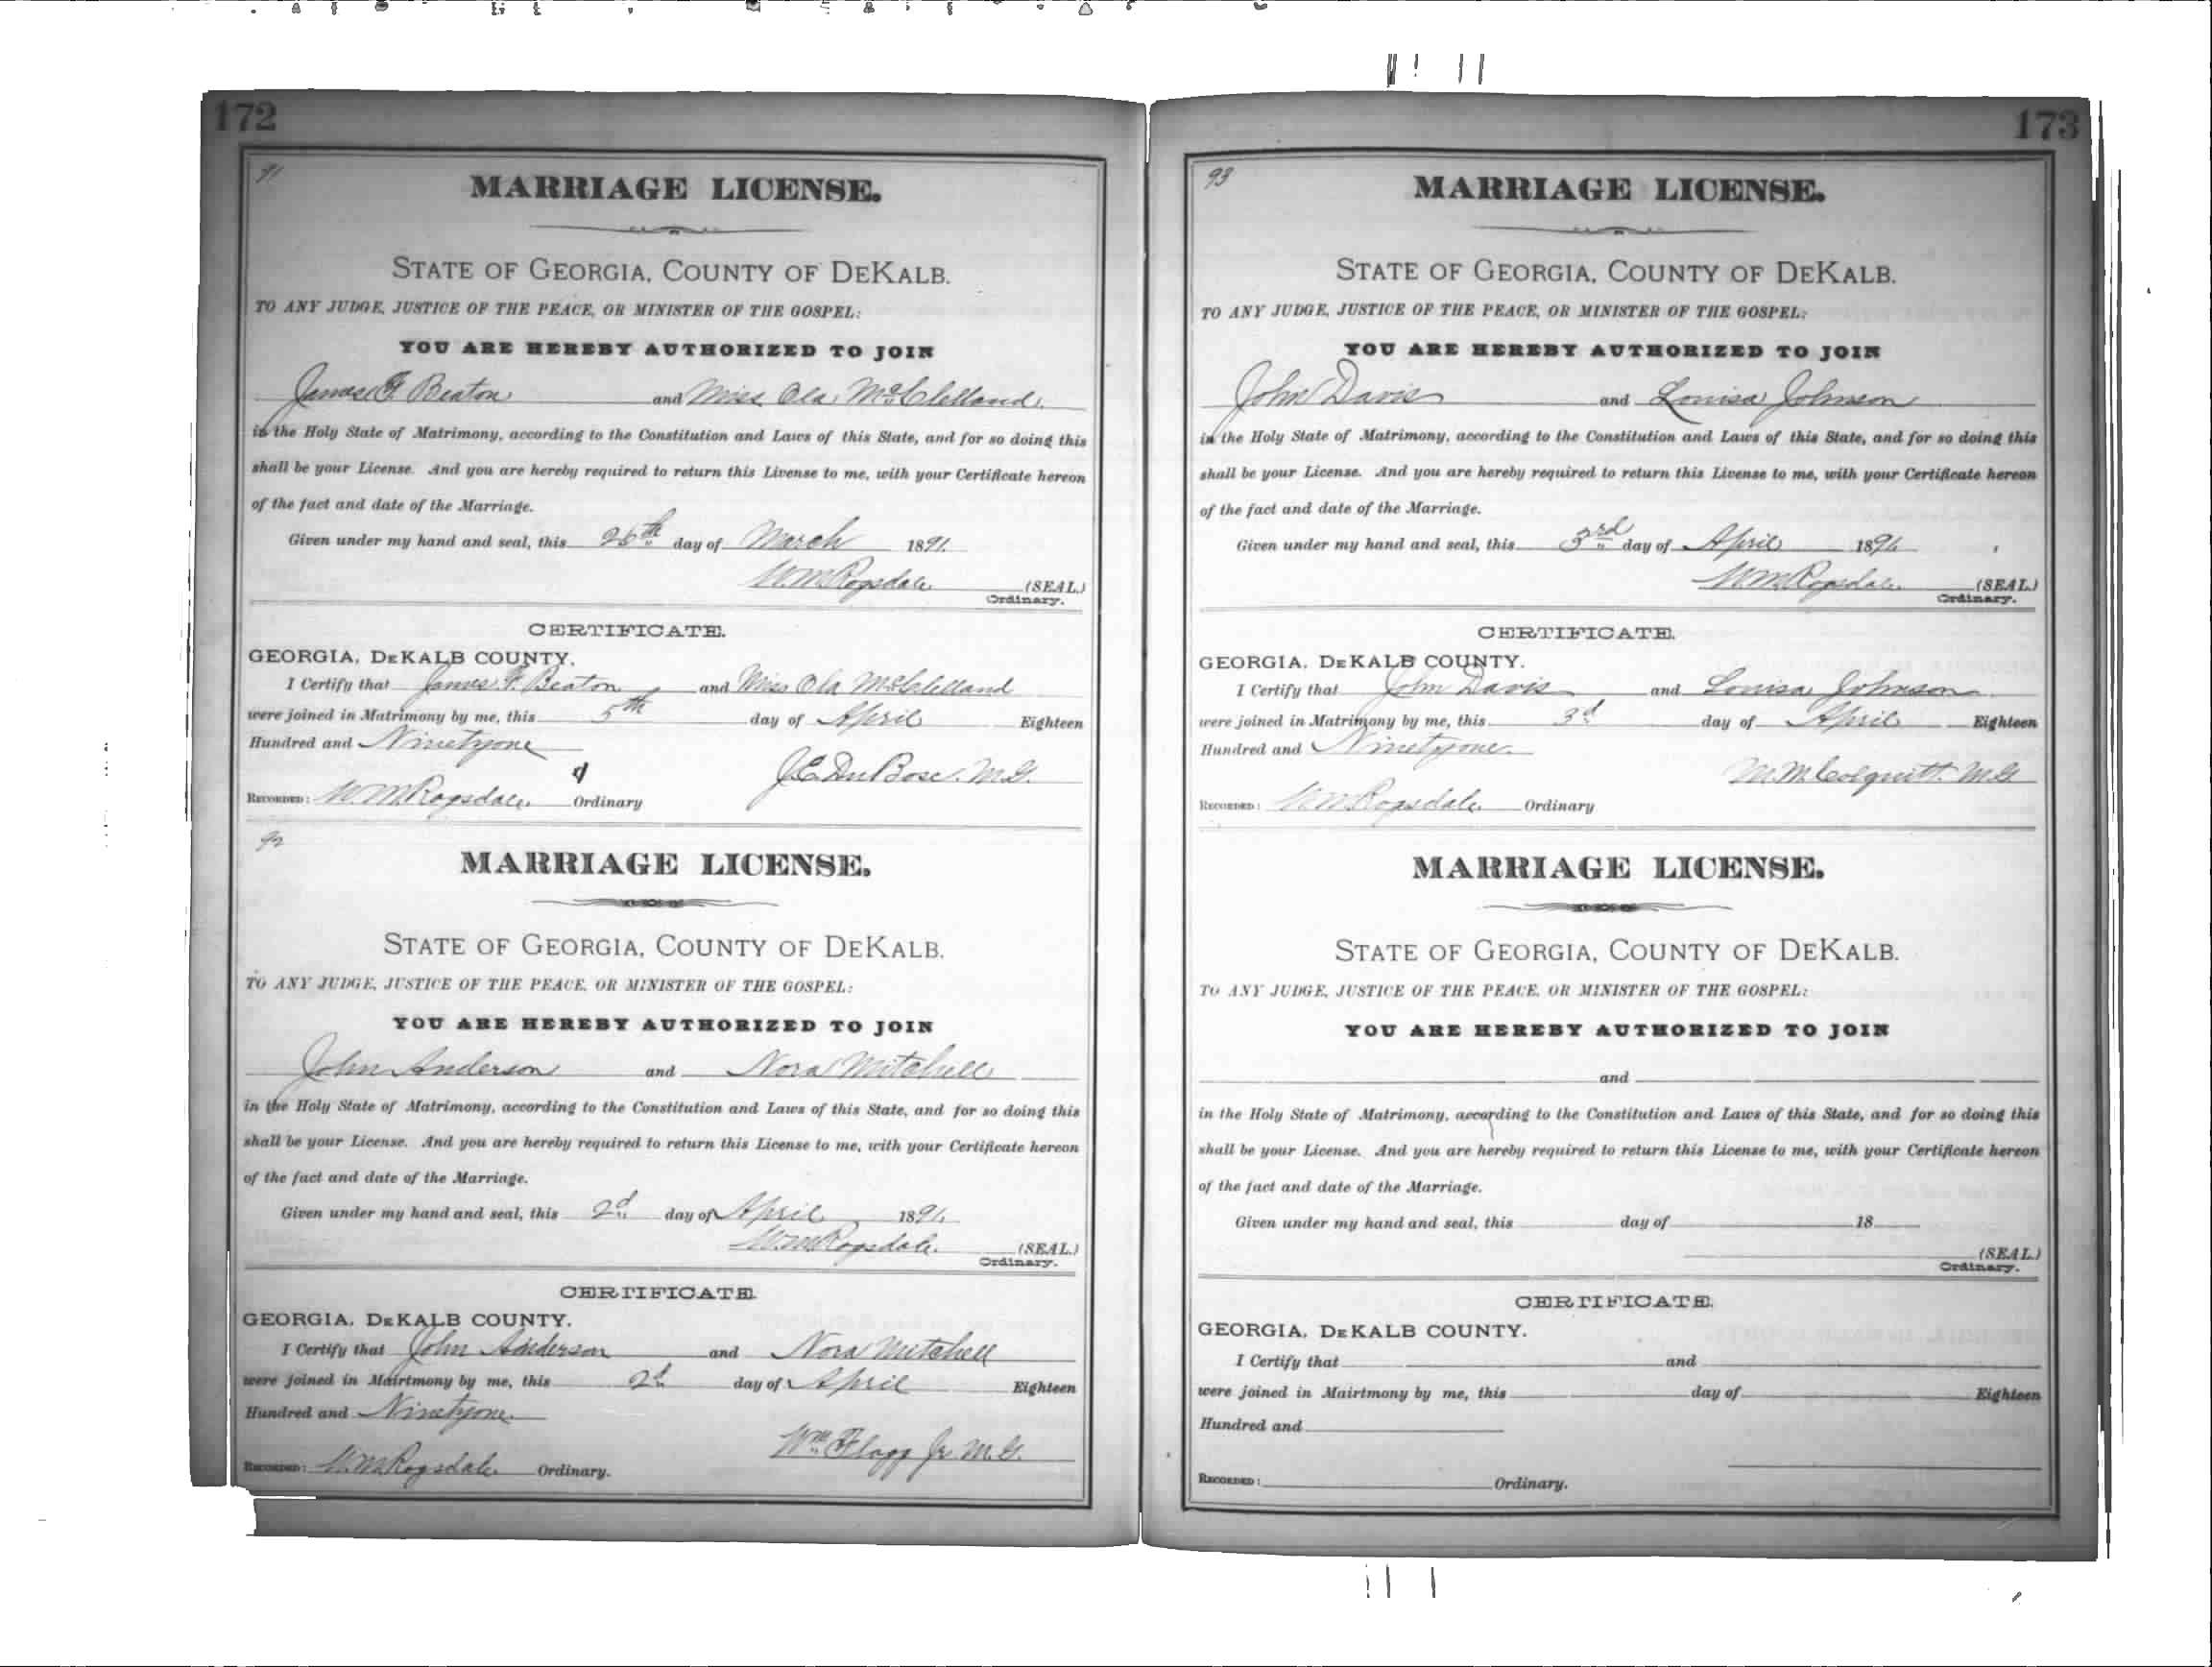 172
91
MARRIAGE LICENSE.
STATE OF GEORGIA, COUNTY OF DEKALB.
TO ANY JUDGE, JUSTICE OF THE PEACE, OR MINISTER OF THE GOSPEL:
YOU ARE HEREBY AUTHORIZED TO JOIN
James F. Beaton and Miss Ola McClelland
in the Holy State of Matrimony, according to the Constitution and Laws of this State, and for so doing this
shall be your License. And you are hereby required to return this License to me, with your Certificate hereon
of the fact and date of the Marriage.
Given under my hand and seal, this 26th day of March 1891
W. M. Ragsdale (SEAL.)
Ordinary.
CERTIFICATE.
GEORGIA, DEKALB COUNTY.
I Certify that James F. Beaton and Miss Ola McClelland
were joined in Matrimony by me, this 5th day of April Eighteen
Hundred and Ninetyone
J.E. DuBose. M.G.
RECORDED: W. M. Ragsdale Ordinary
92
MARRIAGE LICENSE.
STATE OF GEORGIA, COUNTY OF DEKALB.
TO ANY JUDGE, JUSTICE OF THE PEACE, OR MINISTER OF THE GOSPEL:
YOU ARE HEREBY AUTHORIZED TO JOIN
John Anderson and Nora Mitchell
in the Holy State of Matrimony, according to the Constitution and Laws of this State, and for so doing this
shall be your License. And you are hereby required to return this License to me, with your Certificate hereon
of the fact and date of the Marriage.
Given under my hand and seal, this 2d day of April 1891.
W. M. Ragsdale. (SEAL.)
Ordinary.
CERTIFICATE
GEORGIA, DEKALB COUNTY.
I Certify that John Anderson and Nora Mitchell
were joined in Mairtmony by me, this 2d day of April Eighteen
Hundred and Ninetyone.
Wm Flagg Jr. M.G.
RECORDED: W. M. Ragsdale Ordinary.
173
93
MARRIAGE LICENSE.
STATE OF GEORGIA, COUNTY OF DEKALB.
TO ANY JUDGE, JUSTICE OF THE PEACE, OR MINISTER OF THE GOSPEL:
YOU ARE HEREBY AUTHORIZED TO JOIN
John Davis and Louisa Johnson
in the Holy State of Matrimony, according to the Constitution and Laws of this State, and for so doing this
shall be your License. And you are hereby required to return this License to me, with your Certificate hereon
of the fact and date of the Marriage.
Given under my hand and seal, this 3rd day of April 1891
W. M. Ragsdale. (SEAL.)
Ordinary.
CERTIFICATE.
GEORGIA, DEKALB COUNTY.
I Certify that John Davis and Louisa Johnson
were joined in Matrimony by me, this 3d day of April Eighteen
Hundred and Ninetyone.
M. M. Colquitt. M.G
RECORDED: W. M. Ragsdale Ordinary
MARRIAGE LICENSE.
STATE OF GEORGIA, COUNTY OF DEKALB.
TO ANY JUDGE, JUSTICE OF THE PEACE, OR MINISTER OF THE GOSPEL:
YOU ARE HEREBY AUTHORIZED TO JOIN
and
in the Holy State of Matrimony, according to the Constitution and Laws of this State, and for so doing this
shall be your License. And you are hereby required to return this License to me, with your Certificate hereon
of the fact and date of the Marriage.
Given under my hand and seal, this day of 18
(SEAL.)
Ordinary.
CERTIFICATE.
GEORGIA, DEKALB COUNTY.
I Certify that and
were joined in Mairtmony by me, this day of Eighteen
Hundred and
RECORDED: Ordinary.